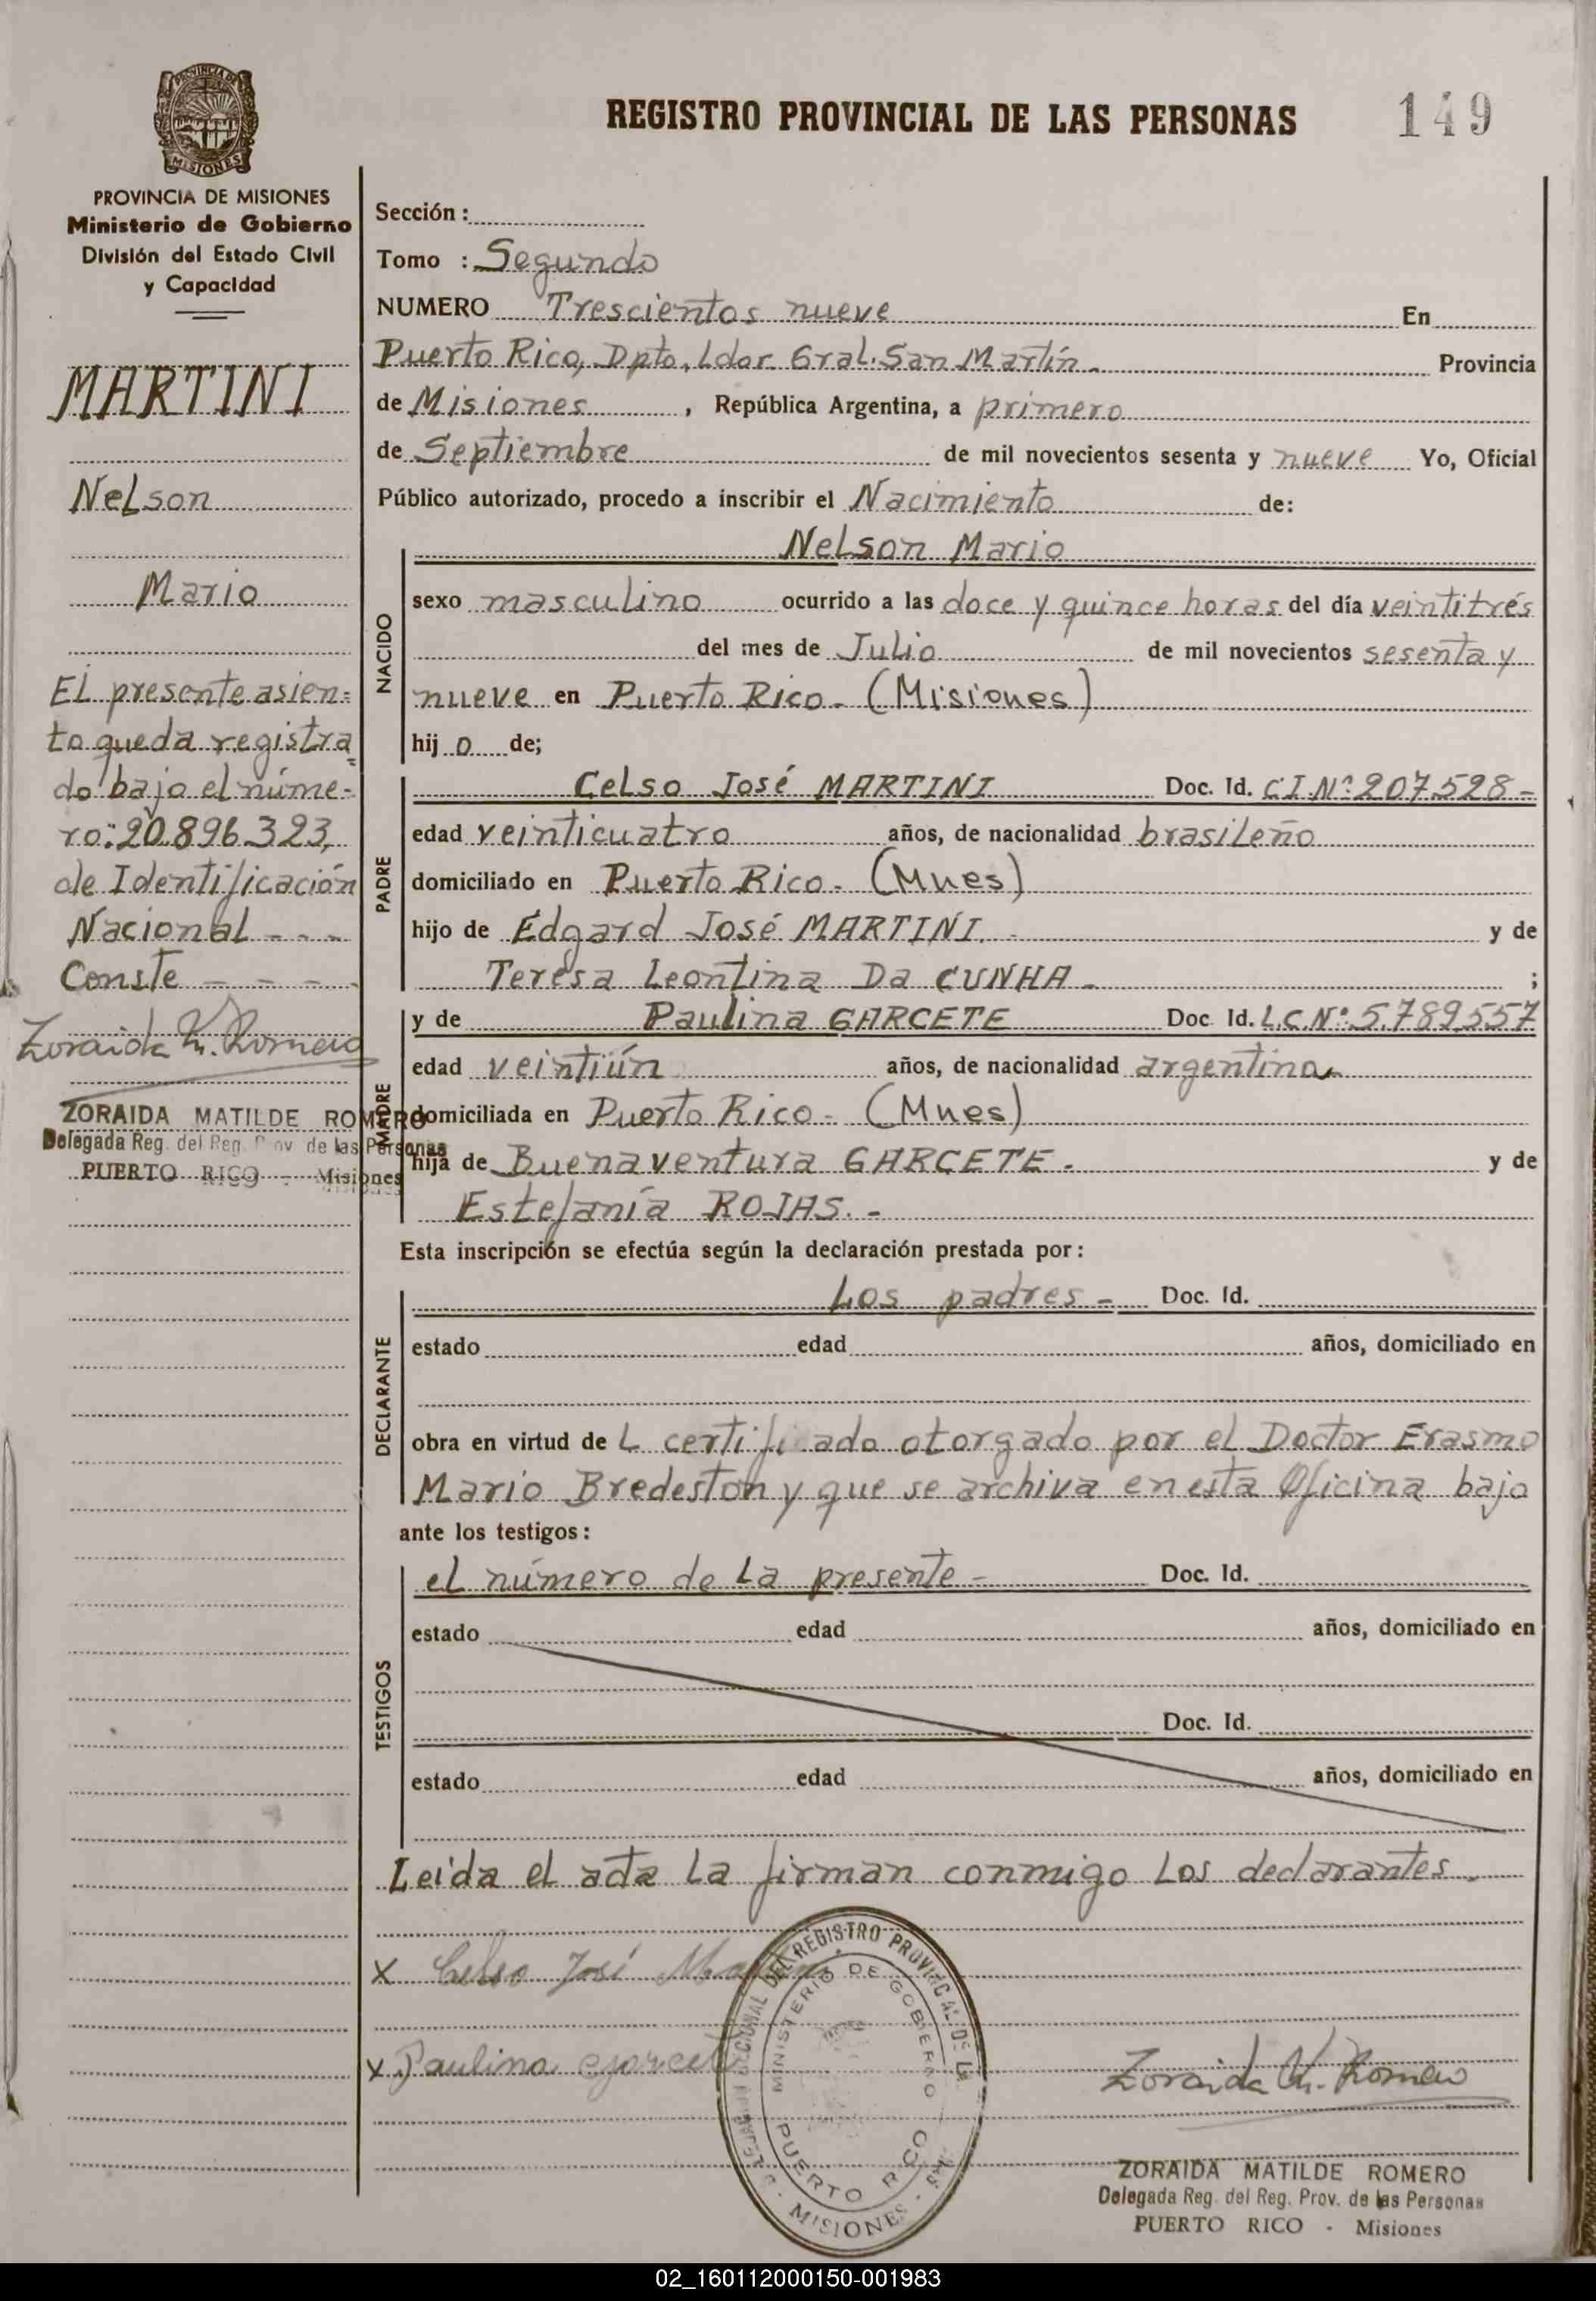 REGISTRO PROVINCIAL DE LAS PERSONAS 149
PROVINCIA DE
MISIONES
PROVINCIA DE MISIONES
Ministerio de Gobierno
División del Estado Civil
y Capacidad
MARTINI
Nelson
Mario
El presente asien=
to queda registra
do bajo el núme-
ro: 20.896.323,
de Identificación
Nacional - - -
Conste - - - -
Zoraida M. Romero
ZORAIDA MATILDE ROMERO
Delegada Reg. del Reg. Prov de las Personas
PUERTO RICO - Misiones
Sección :
Tomo : Segundo
NUMERO Trescientos nueve En
Puerto Rico, Dpto. Ldor. Gral. San Martín. Provincia
de Misiones , República Argentina, a primero
de Septiembre de mil novecientos sesenta y nueve Yo, Oficial
Público autorizado, procedo a inscribir el Nacimiento de:
NACIDO
Nelson Mario
sexo masculino ocurrido a las doce y quince horas del día veintitrés
del mes de Julio de mil novecientos sesenta y
nueve en Puerto Rico. (Misiones)
hij o de;
PADRE
Celso José MARTINI Doc. Id. C.I.Nº 207.528-
edad veinticuatro años, de nacionalidad brasileño
domiciliado en Puerto Rico. (Mnes)
hijo de Edgard José MARTINI. - y de
Teresa Leontina Da CUNHA - ;
MADRE
y de Paulina GARCETE Doc. Id. L.C.Nº 5.789.557
edad veintiún años, de nacionalidad argentina
domiciliada en Puerto Rico. (Mnes)
hija de Buenaventura GARCETE. y de
Estefanía ROJAS. -
Esta inscripción se efectúa según la declaración prestada por :
DECLARANTE
Los padres - Doc. Id.
estado edad años, domiciliado en
obra en virtud de L certificado otorgado por el Doctor Erasmo
Mario Bredeston y que se archiva en esta Oficina bajo
ante los testigos :
TESTIGOS
el número de la presente - Doc. Id.
estado edad años, domiciliado en
Doc. Id.
estado edad años, domiciliado en
Leída el acta la firman conmigo los declarantes.
x Celso José Martini
x Paulina Garcete
REGISTRO PROVINCIAL DE LA
MINISTERIO DE GOBIERNO
PUERTO RICO
MISIONES
Zoraida M. Romero
ZORAIDA MATILDE ROMERO
Delegada Reg. del Reg. Prov. de las Personas
PUERTO RICO - Misiones
02_160112000150-001983